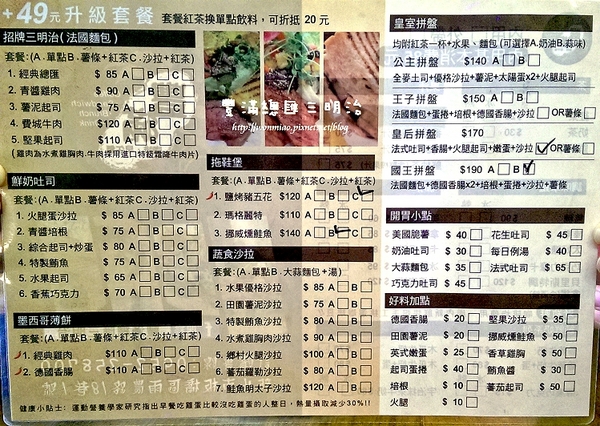 +49元升級套餐
套餐紅茶換單點飲料,可折抵 20 元
招牌三明治(法國麵包)
套餐:(A.單點B.薯條+紅茶C.沙拉+紅茶)
1. 經典總匯 $ 85 A B C
2. 青醬雞肉 $ 90 A B C
3. 薯泥起司 $ 75 A B C
4. 費城牛肉 $120 A B C
5. 堅果起司 $110 A B C
(雞肉為水煮雞胸肉.牛肉採用進口特級霜降牛肉片)
鮮奶吐司
套餐:(A.單點B.薯條+紅茶C.沙拉+紅茶)
1. 火腿蛋沙拉 $ 85 A B C
2. 青醬培根 $ 75 A B C
3. 綜合起司+炒蛋 $ 80 A B C
4. 特製鮪魚 $ 75 A B C
5. 水果起司 $ 65 A B C
6. 香蕉巧克力 $ 70 A B C
墨西哥薄餅
套餐:(A.單點B.薯條+紅茶C.沙拉+紅茶)
1. 經典雞肉 $110 A B C
2. 德國香腸 $110 A B C
健康小貼士: 運動營養學家研究指出早餐吃雞蛋比較沒吃雞蛋的人整日,熱量攝取減少30%!!
豐滿總匯三明治
http://wonmiao.pixnet.net/blog
拖鞋堡
套餐:(A.單點B.薯條+紅茶C.沙拉+紅茶)
1. 鹽烤豬五花 $120 A B C
2. 瑪格麗特 $110 A B C
3. 挪威燻鮭魚 $140 A B C
蔬食沙拉
套餐:(A.單點B.大蒜麵包+湯)
1. 水果優格沙拉 $ 85 A B
2. 田園薯泥沙拉 $ 75 A B
3. 特製鮪魚沙拉 $ 80 A B
4. 水煮雞胸肉沙拉 $ 90 A B
5. 鄉村火腿沙拉 $100 A B
6. 蕃茄羅勒沙拉 $ 80 A B
7. 鮭魚明太子沙拉 $120 A B
皇室拼盤
均附紅茶一杯+水果、麵包(可選擇A.奶油B.蒜味)
公主拼盤 $140 A B
全麥土司+優格沙拉+薯泥+太陽蛋x2+火腿起司
王子拼盤 $150 A B
法國麵包+蛋捲+培根+德國香腸+沙拉 OR薯條
皇后拼盤 $170
法式吐司+香腸+火腿起司+嫩蛋+沙拉 OR薯條
國王拼盤 $190 A B
法國麵包+德國香腸x2+培根+蛋捲+沙拉+薯條
開胃小點
美國脆薯 $ 40 花生吐司 $ 45
奶油吐司 $ 30 每日例湯 $ 40
大蒜麵包 $ 35 法式吐司 $ 65
巧克力吐司 $ 45
好料加點
德國香腸 $ 20 堅果沙拉 $ 35
田園薯泥 $ 20 挪威燻鮭魚 $ 50
英式嫩蛋 $ 25 香草雞胸 $ 50
起司蛋捲 $ 40 鮪魚醬 $ 30
培根 $ 10 蕃茄起司 $ 50
火腿 $ 10